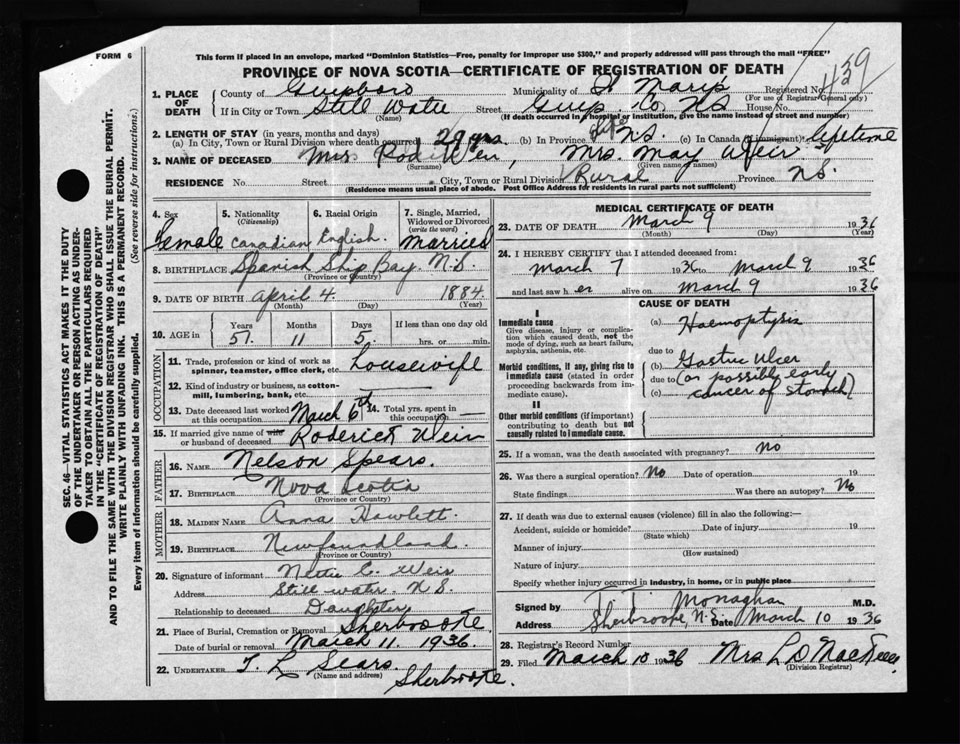 FORM 6
This form if placed in an envelope, marked "Dominion Statistics—Free, penalty for improper use $300," and properly addressed will pass through the mail "FREE"
PROVINCE OF NOVA SCOTIA—CERTIFICATE OF REGISTRATION OF DEATH
439
1. PLACE OF DEATH
County of Guysboro Municipality of St Mary's Registered No.
(For use of Registrar General only)
If in City or Town Still Water Street Guys. Co. N.S House No.
(Name) (If death occurred in a hospital or institution, give the name instead of street and number)
2. LENGTH OF STAY (in years, months and days)
(a) In City, Town or Rural Division where death occurred 29 yrs. (b) In Province Life N.S. (c) In Canada (if immigrant) Lifetime
3. NAME OF DECEASED Mrs Rod Weir, Mrs. May Weir
(Surname) (Given name or names)
RESIDENCE No. Street City, Town or Rural Division Rural Province N.S.
(Residence means usual place of abode. Post Office Address for residents in rural parts not sufficient)
4. Sex Female
5. Nationality (Citizenship) Canadian
6. Racial Origin English.
7. Single, Married, Widowed or Divorced (write the word) Married
8. BIRTHPLACE Spanish Ship Bay. N.S.
(Province or Country)
9. DATE OF BIRTH April 4. 1884.
(Month) (Day) (Year)
10. AGE in Years 51. Months 11 Days 5. If less than one day old hrs. or min.
OCCUPATION
11. Trade, profession or kind of work as spinner, teamster, office clerk, etc. Housewife
12. Kind of industry or business, as cotton-mill, lumbering, bank, etc.
13. Date deceased last worked at this occupation March 6th 14. Total yrs. spent in this occupation —
15. If married give name of wife or husband of deceased Roderick Weir
FATHER
16. NAME Nelson Spears.
17. BIRTHPLACE Nova Scotia
(Province or Country)
MOTHER
18. MAIDEN NAME Anna Hawlett.
19. BIRTHPLACE Newfoundland.
(Province or Country)
20. Signature of informant Nettie C. Weir
Address Still-water. N.S.
Relationship to deceased Daughter
21. Place of Burial, Cremation or Removal Sherbrooke.
Date of burial or removal March 11. 1936.
22. UNDERTAKER T. L Sears. Sherbrooke.
(Name and address)
MEDICAL CERTIFICATE OF DEATH
23. DATE OF DEATH March 9 1936
(Month) (Day)
24. I HEREBY CERTIFY that I attended deceased from:
March 7 1936 to March 9 1936
and last saw her alive on March 9 1936
CAUSE OF DEATH
I
Immediate cause
Give disease, injury or complication which caused death, not the mode of dying, such as heart failure, asphyxia, asthenia, etc.
(a) Haemoptysis
due to
Morbid conditions, if any, giving rise to immediate cause (stated in order proceeding backwards from immediate cause).
(b) Gastric Ulcer
due to (or possibly early
(c) cancer of stomach)
II
Other morbid conditions (if important) contributing to death but not causally related to immediate cause.
25. If a woman, was the death associated with pregnancy? no
26. Was there a surgical operation? No Date of operation 19
State findings Was there an autopsy? No
27. If death was due to external causes (violence) fill in also the following:—
Accident, suicide or homicide? Date of injury 19
(State which)
Manner of injury
(How sustained)
Nature of injury
Specify whether injury occurred in industry, in home, or in public place
Signed by T. T. Monaghan M.D.
Address Sherbrooke, N.S. Date March 10 1936
28. Registrar's Record Number
29. Filed March 10 1936 Mrs L D
(Division Registrar)
SEC. 46—VITAL STATISTICS ACT MAKES IT THE DUTY
OF THE UNDERTAKER OR PERSON ACTING AS UNDER-
TAKER TO OBTAIN ALL THE PARTICULARS REQUIRED
IN THE "CERTIFICATE OF REGISTRATION OF DEATH"
AND TO FILE THE SAME WITH THE DIVISION REGISTRAR WHO SHALL ISSUE THE BURIAL PERMIT.
WRITE PLAINLY WITH UNFADING INK. THIS IS A PERMANENT RECORD.
Every item of information should be carefully supplied. (See reverse side for instructions.)